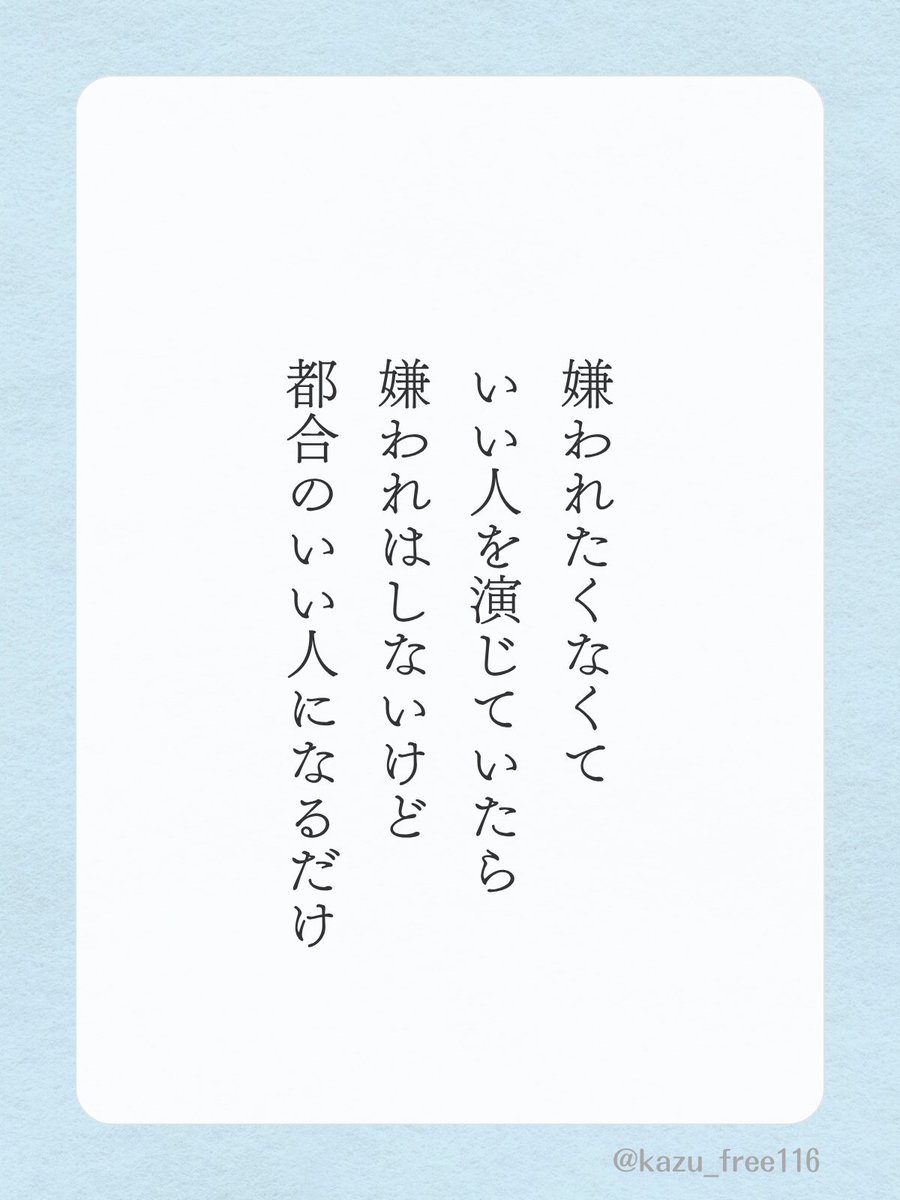 嫌われたくなくて
いい人を演じていたら
嫌われはしないけど
都合のいい人になるだけ
@kazu_free116